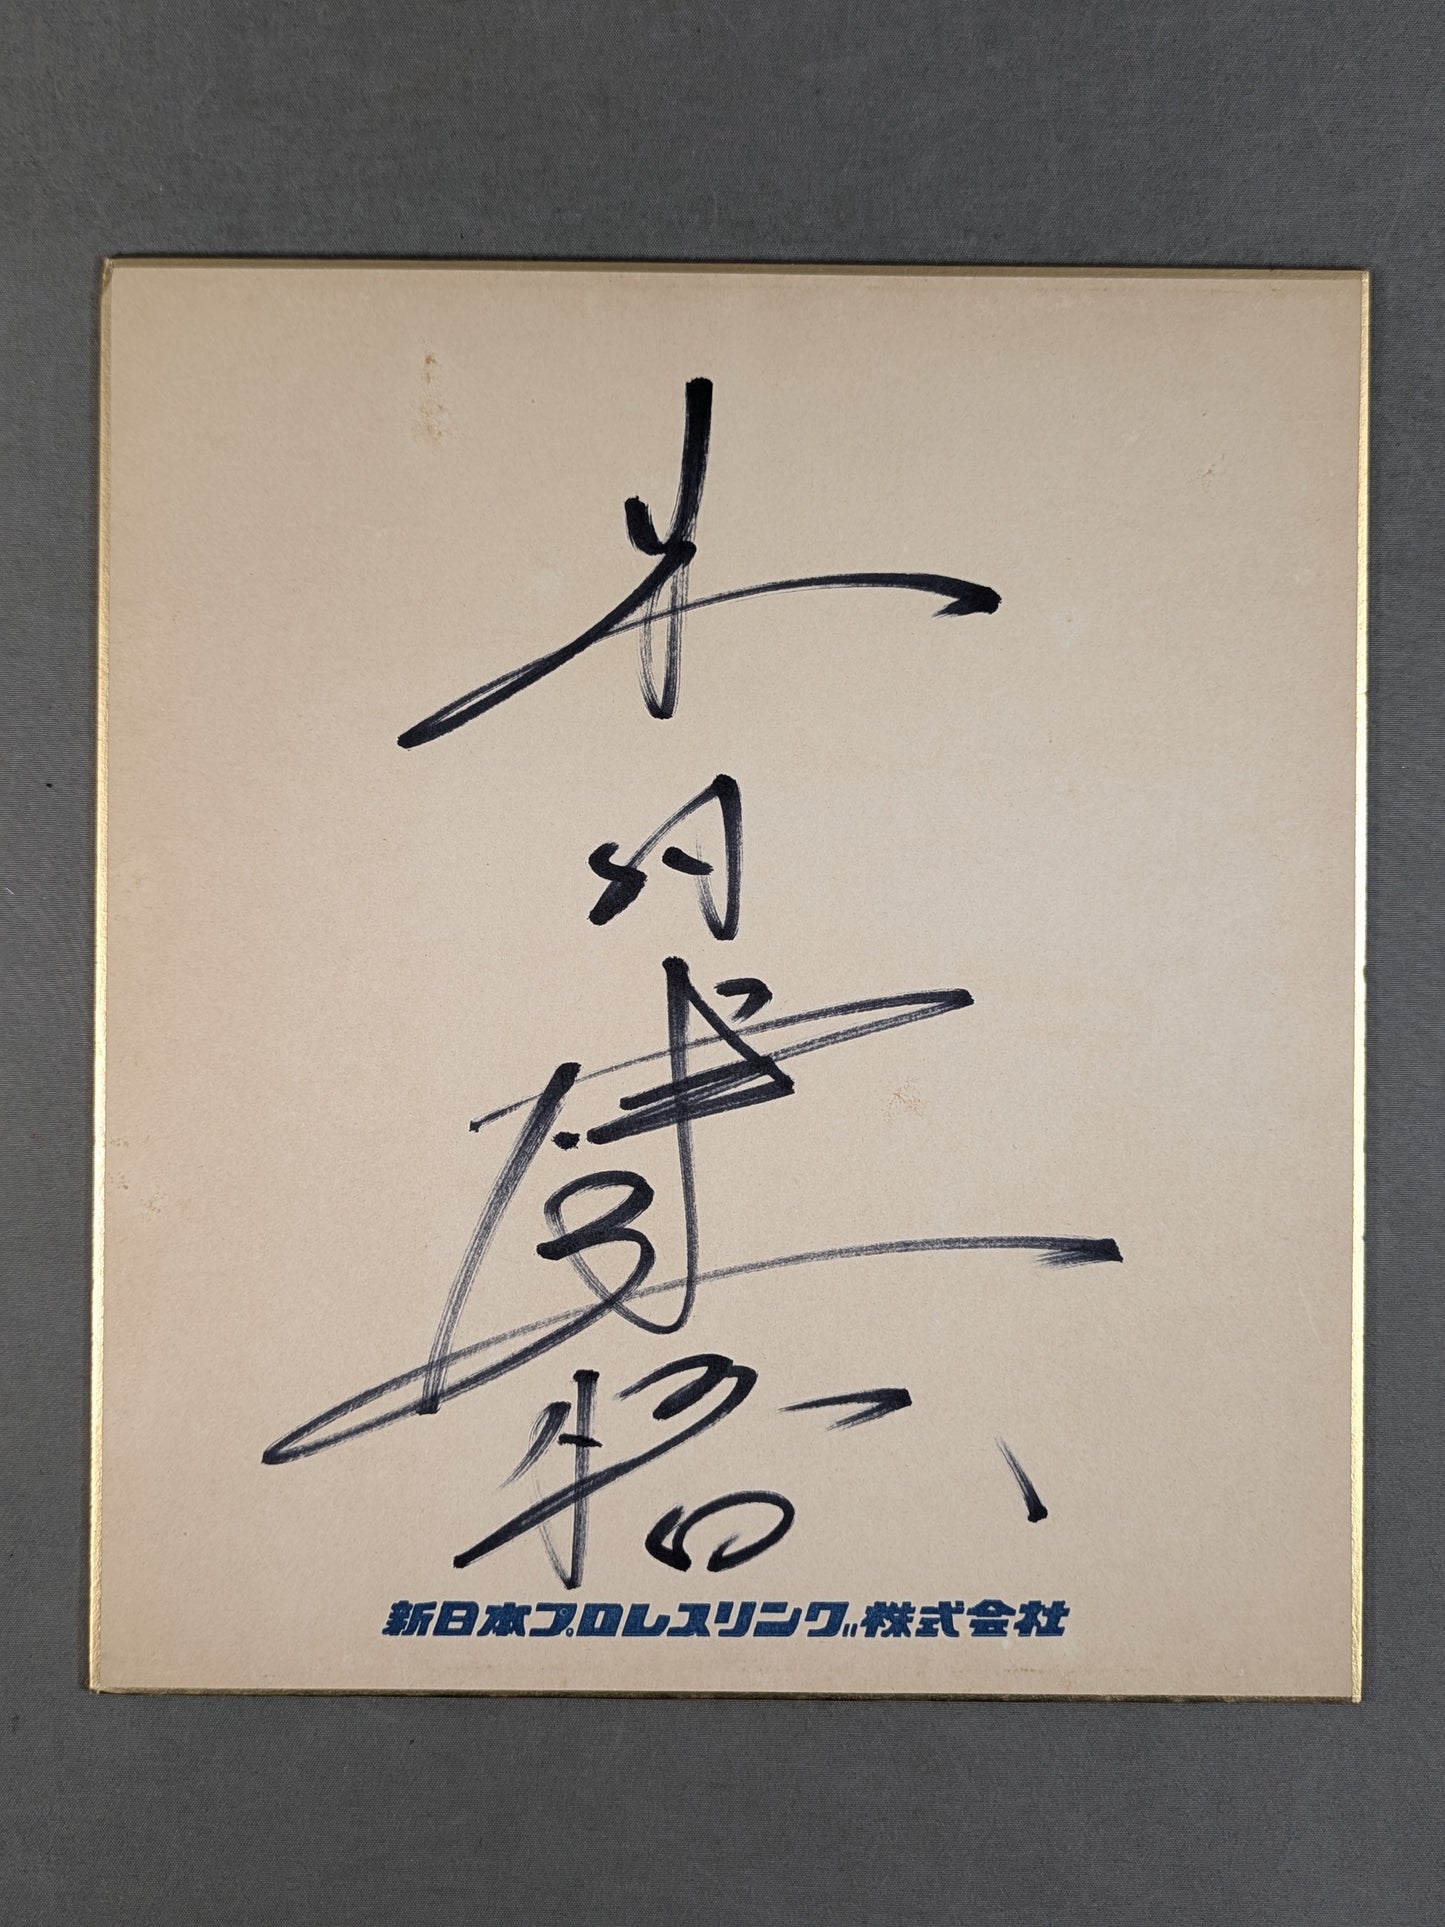 木村健悟
新日本プロレスリング株式会社